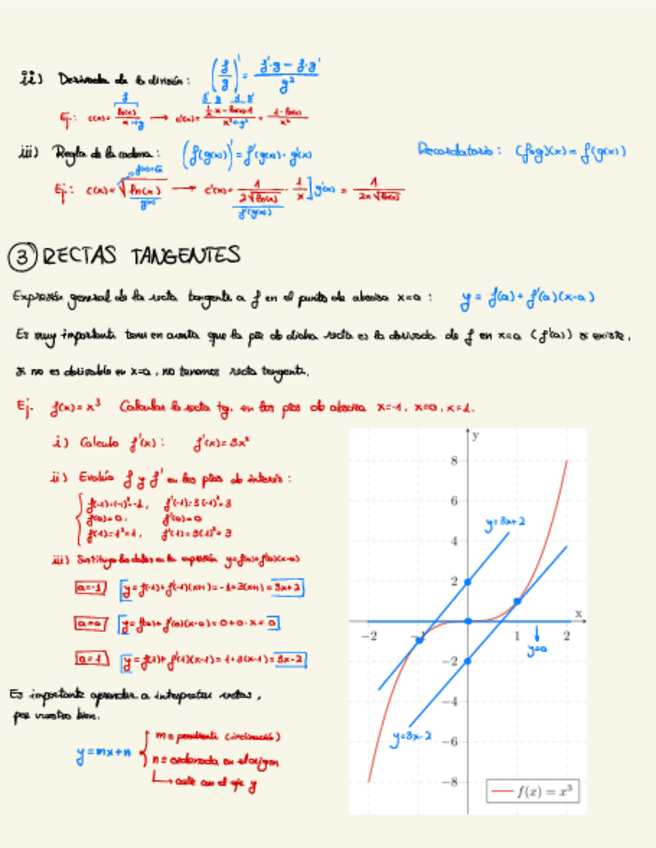 ii) Derivada de la división: (f/g)' = (f'·g - f·g')/g²
Ej: c(x) = ln(x)/x → c'(x) = (1/x · x - ln(x)·1)/x² = (1 - ln(x))/x²
iii) Regla de la cadena: (f(g(x)))' = f'(g(x))·g'(x) Recordatorio: (f∘g)(x) = f(g(x))
f(x)=√x
Ej: c(x) = √ln(x) → c'(x) = 1/(2√ln(x)) · 1/x ] g'(x) = 1/(2x√ln(x))
g(x) f'(g(x))
③ RECTAS TANGENTES
Expresión general de la recta tangente a f en el punto de abscisa x=a: y = f(a) + f'(a)(x-a)
Es muy importante tener en cuenta que la pte de dicha recta es la derivada de f en x=a (f'(a)) si existe,
si no es derivable en x=a, no tenemos recta tangente.
Ej. f(x) = x³ Calcular la recta tg. en los ptos de abscisa x=-1, x=0, x=1.
i) Calculo f'(x): f'(x) = 3x²
ii) Evalúo f y f' en los ptos de interés:
f(-1)=(-1)³=-1, f'(-1)=3(-1)²=3
f(0)=0, f'(0)=0
f(1)=1³=1, f'(1)=3(1)²=3
iii) Sustituyo los datos en la expresión y=f(a)+f'(a)(x-a)
a=-1 y = f(-1)+f'(-1)(x+1) = -1+3(x+1) = 3x+2
a=0 y = f(0)+f'(0)(x-0) = 0+0·x = 0
a=1 y = f(1)+f'(1)(x-1) = 1+3(x-1) = 3x-2
Es importante aprender a interpretar rectas,
por vuestro bien.
y = mx+n
m = pendiente (inclinación)
n = ordenada en el origen
↳ corte con el eje y
y
8
6
y=3x+2
4
2
x
-2 -1 1 2
y=0
-2
-4
y=3x-2
-6
-8
f(x) = x³